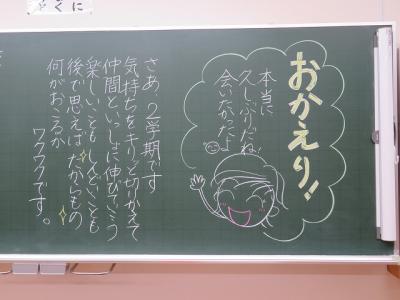 らくに
おかえり!
本当に
久しぶりだね!
会いたかったよ
さあ、2学期です
気持ちをキリッと切りかえて
仲間といっしょに伸びていこう
楽しいことも しんどいことも
後で思えば たからもの
何がおこるか
ワクワクです。